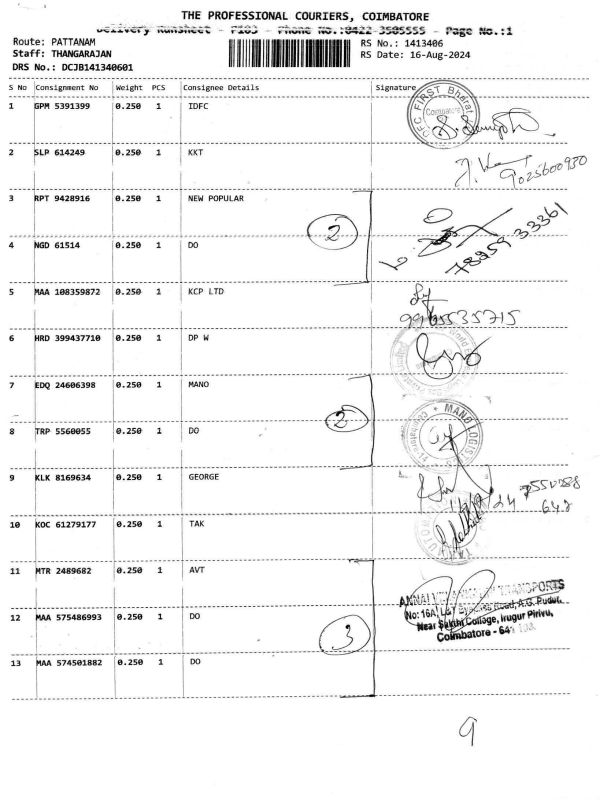 THE PROFESSIONAL COURIERS, COIMBATORE
Delivery Runsheet - P103 - Phone No.:0422-3505555 - Page No.:1
Route: PATTANAM
RS No.: 1413406
Staff: THANGARAJAN
RS Date: 16-Aug-2024
DRS No.: DCJB141340601
S No Consignment No Weight PCS Consignee Details Signature
1 GPM 5391399 0.250 1 IDFC
IDFC FIRST Bharat
Coimbatore
2 SLP 614249 0.250 1 KKT
9025600930
3 RPT 9428916 0.250 1 NEW POPULAR
2
78259 33361
4 NGD 61514 0.250 1 DO
5 MAA 108359872 0.250 1 KCP LTD
9965535715
6 HRD 399437710 0.250 1 DP W
7 EDQ 24606398 0.250 1 MANO
2
MANO LOGIST
8 TRP 5560055 0.250 1 DO
9 KLK 8169634 0.250 1 GEORGE
10 KOC 61279177 0.250 1 TAK
11 MTR 2489682 0.250 1 AVT
No: 16A, L&T Bypass Road, A.G. Pudur,
Near Sakthi College, Irugur Pirivu,
Coimbatore - 641 103.
12 MAA 575486993 0.250 1 DO
3
13 MAA 574501882 0.250 1 DO
9